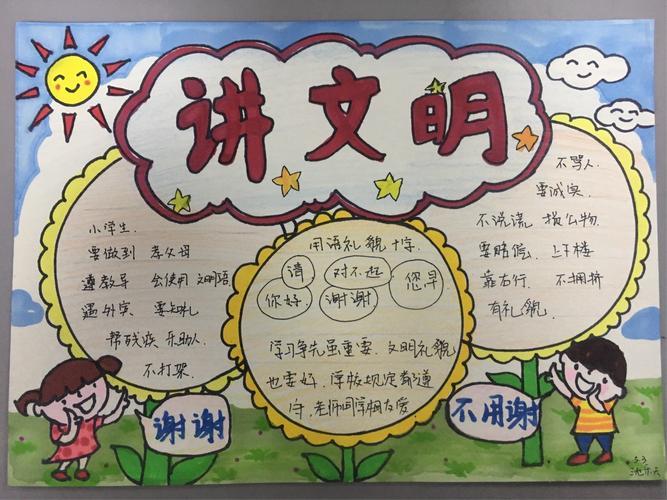 讲文明
小学生.
要做到 孝父母
遵教导 会使用 文明语
遇外宾 要知礼
帮残疾 乐助人
不打架.
用语礼貌十字.
请
对不起
您早
你好.
谢谢
学习争先虽重要.文明礼貌
也要好.学校规定都遵
守.老师同学相友爱.
不骂人.
要诚实.
不说谎 损公物
要赔偿. 上下楼
靠右行. 不拥挤
有礼貌.
谢谢
不用谢
5.3